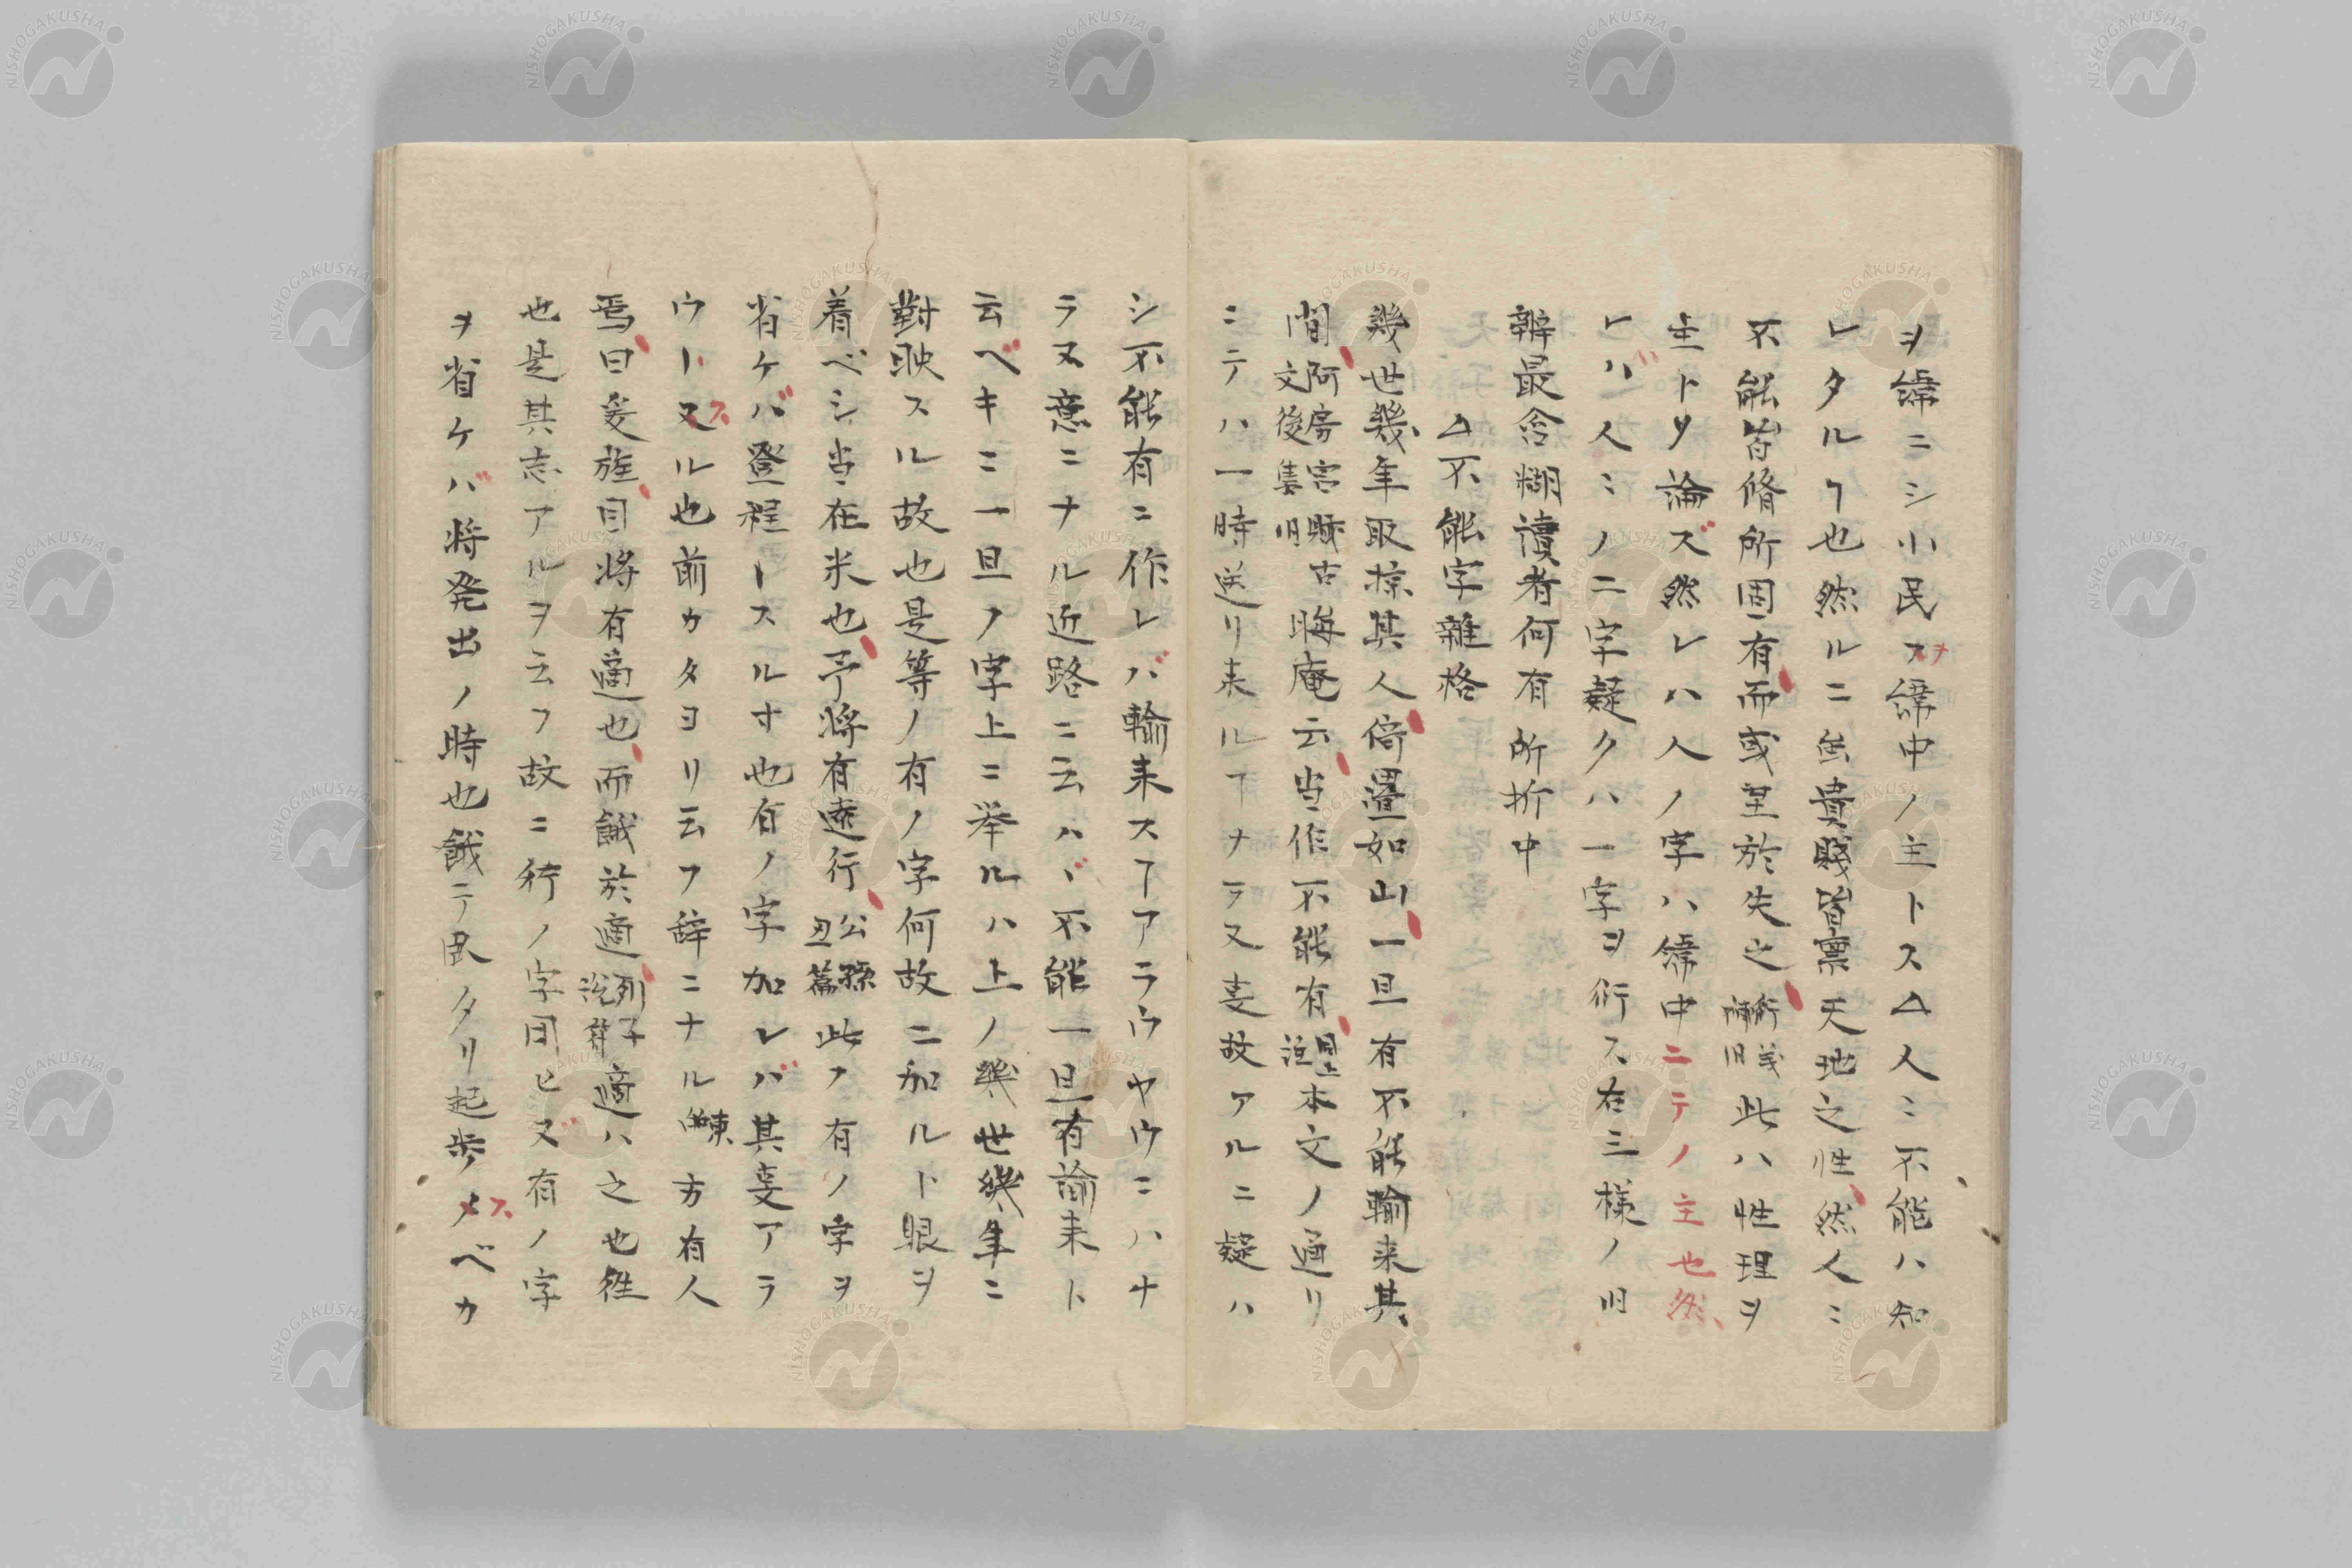 ヲ緯ニシ小民ヲ緯中ノ主トス△人ミ不能ハ知
レタルヿ也然ルニ無貴賤皆稟天地之性然人ミ
不能皆脩所固有而或至於失之衍義旧此ハ性理ヲ
主トツ論ズ然レハ人ノ字ハ緯中ニテノ主也然
レバ人ミノ二字疑クハ一字ヲ衍ス右三様ノ旧
辨最含糊讀者何有所折中
△不能字雜格
幾世幾年取掠其人倚疊如山一旦有不能輸来其
間阿房宮賦古文後集旧晦庵云当作不能有同上註本文ノ通リ
ニテハ一時送リ来ルヿナラヌ㕝故アルニ疑ハ
シ不能有ニ作レバ輸来スヿアラウヤウニハナ
ラヌ意ニナル近路ニ云ハヾ不能一旦有輸来ト
云ベキニ一旦ノ字上ニ挙ルハ上ノ幾世幾年ニ
對映スル故也是等ノ有ノ字何故ニ加ルト眼ヲ
着ベシ当在米也予將有遠行公孫丑篇此ノ有ノ字ヲ
省ケバ登程トスルオ也有ノ字加レバ其㕝アラ
ウトスル也前カタヨリ云フ辞ニナル東方有人
焉曰爰旌目将有適也而餓於道列子説符適ハ之也往
也是其志アルヲ云フ故ニ行ノ字用ヒズ有ノ字
ヲ省ケバ将発出ノ時也餓テ困タリ起歩スベカ